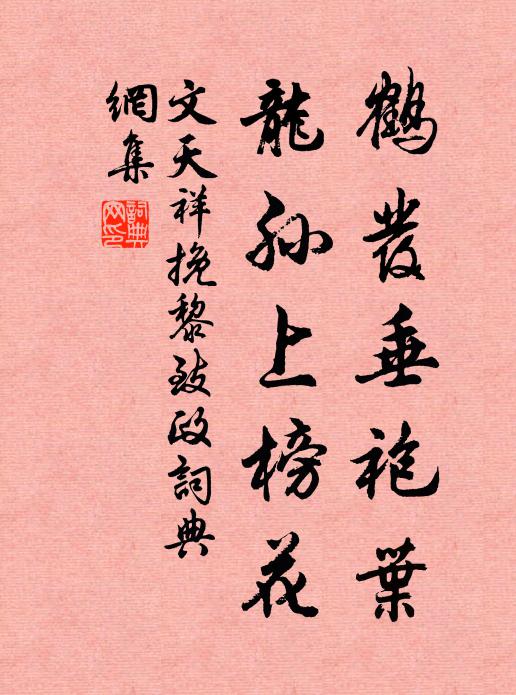 鶴發垂袍葉
龍孫上榜花
文天祥挽黎致政詞典
網集
詞典
网印